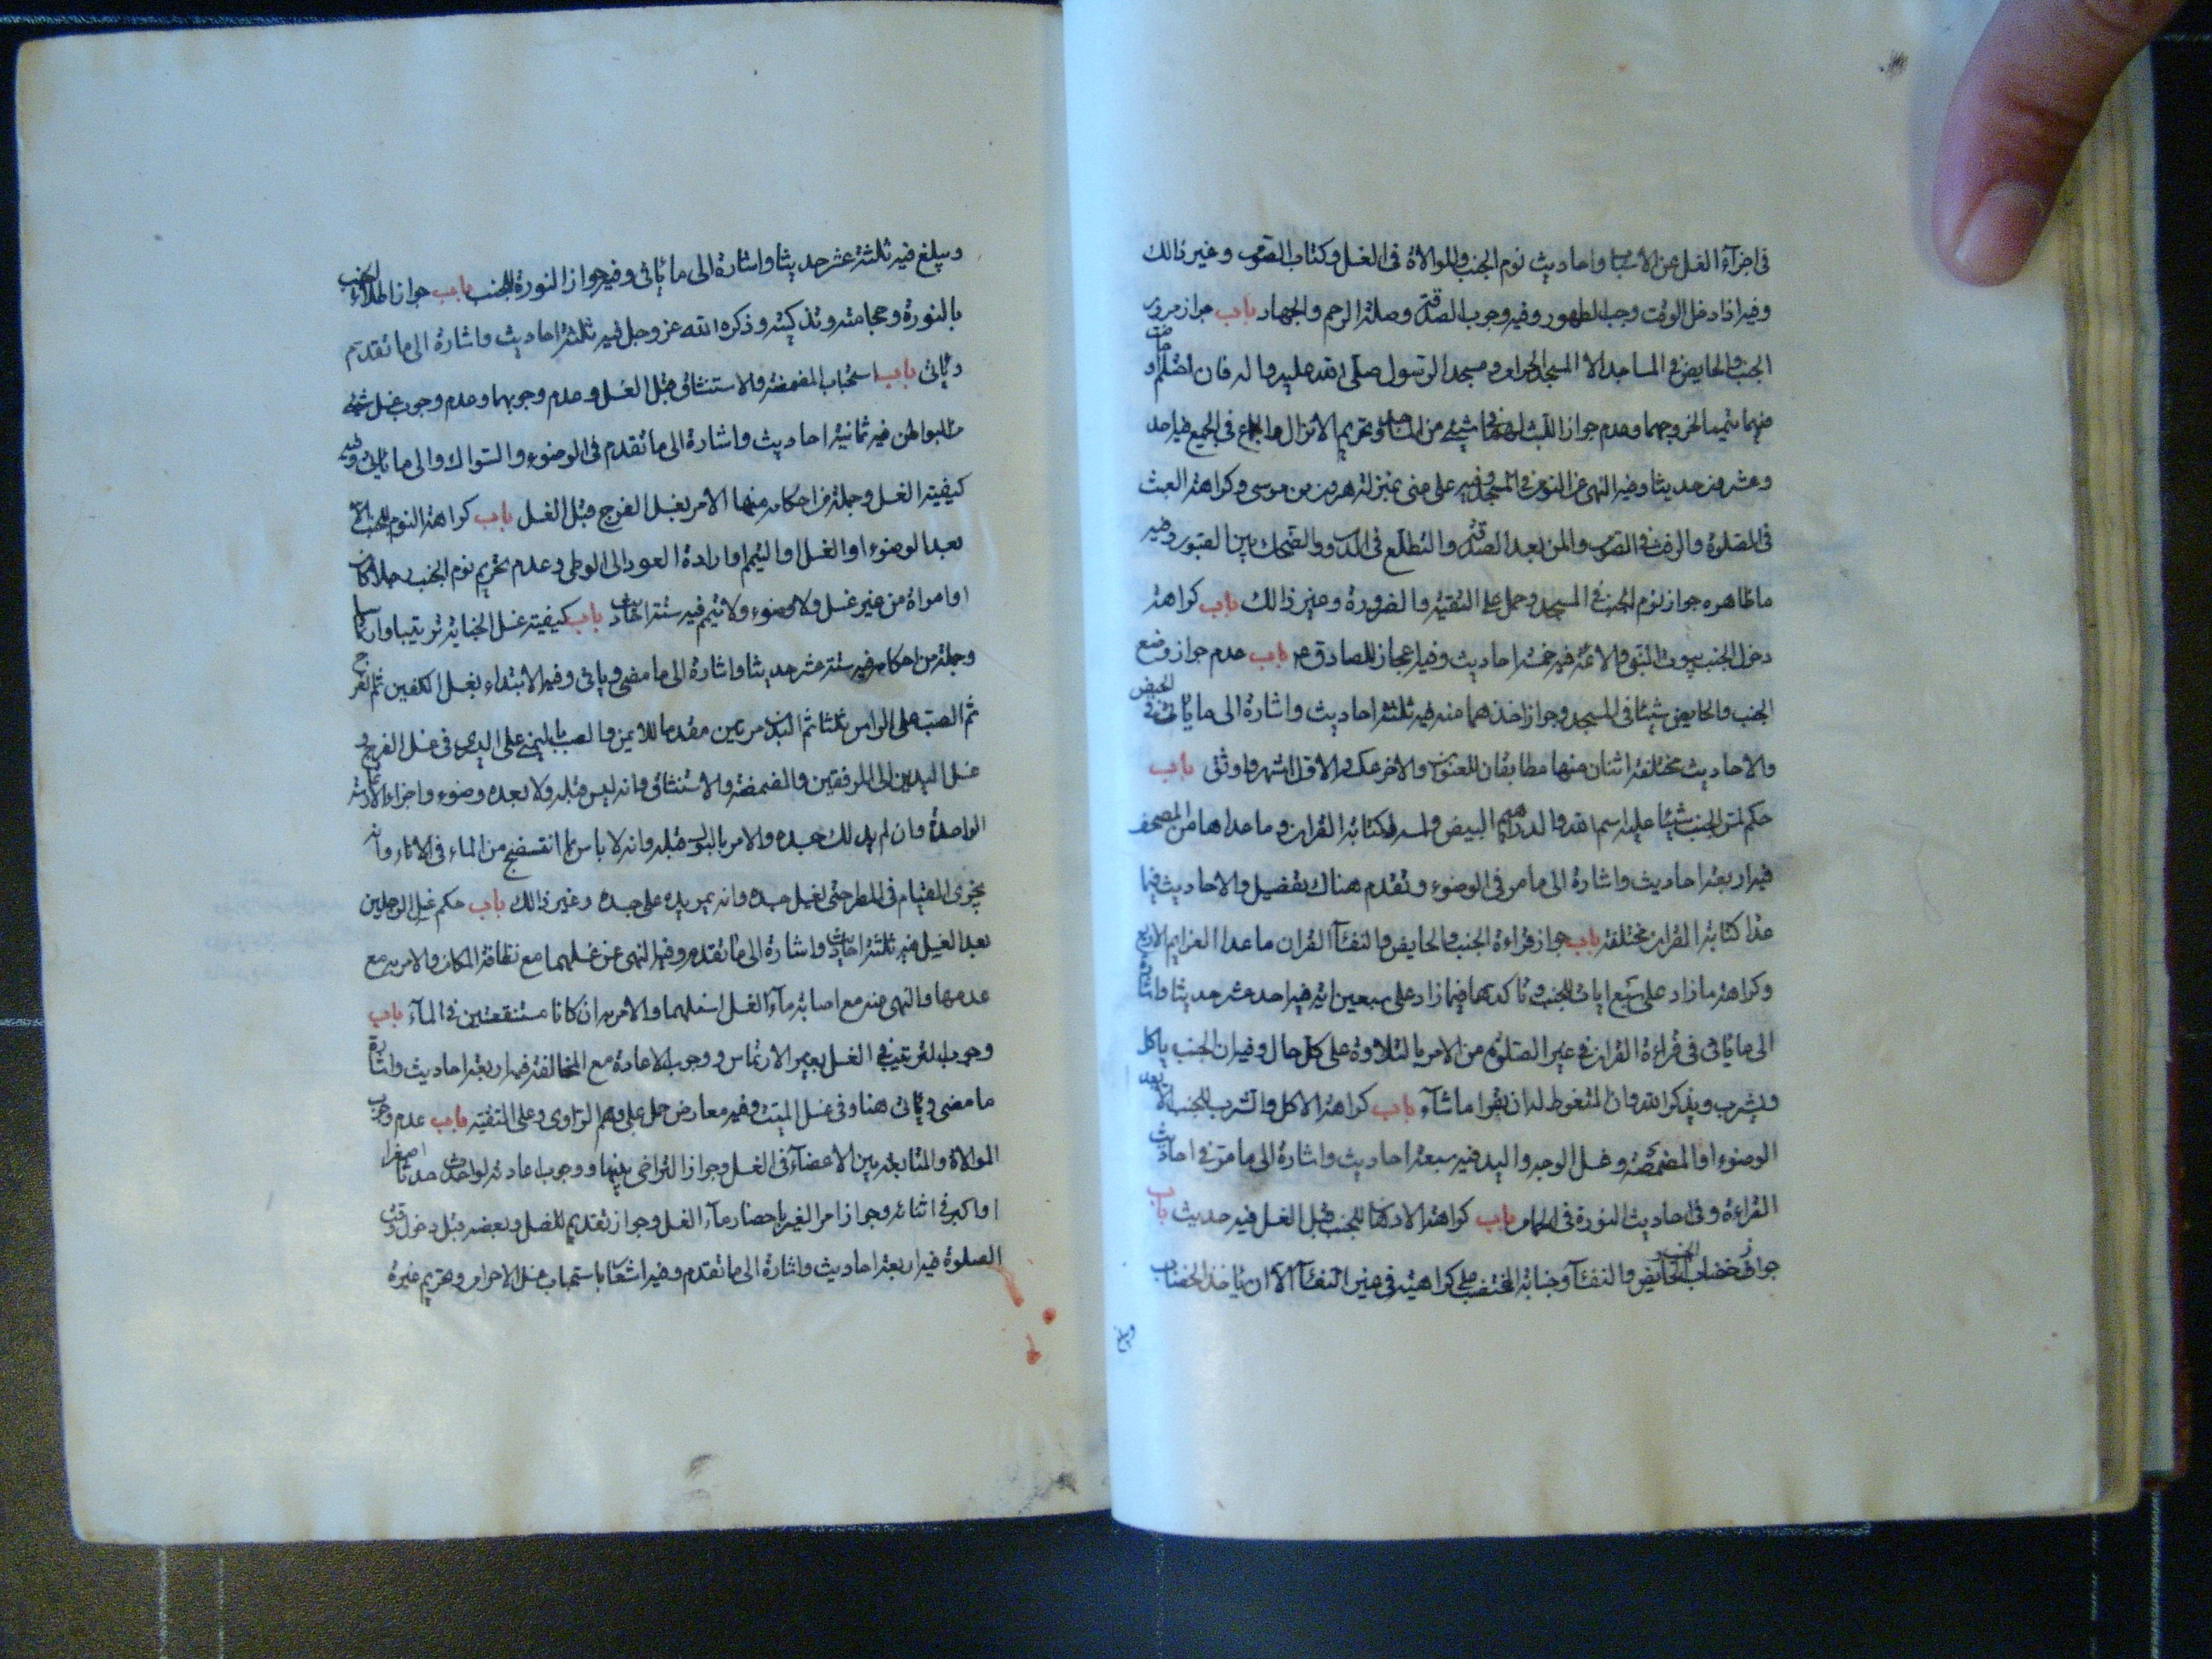 في اجزآء الغسل عن الاسباب واحاديث نوم الجنب والموالاة فى الغسل وكتاب الصوم وغير ذالك
وفيه اذا دخل الوقت وجب الطهور وفيه وجوب الصدقة وصلة الرحم والجهاد باب جواز مرور
الجنب والحايض فى المساجد الا المسجد الحرام ومسجد الرسول صلى الله عليه واله فان احتلم او حاضت
منهما تيمما لخروجهما وعدم جواز اللبث فى شيئ من المساجد وتحريم الانزال والجماع فى الجميع فيه احد
وعشرون حديثا وفيه النهى عن النوم فى المسجد وفيه على منى بمنزلة هرون من موسى وكراهة العبث
فى الصلوة والرفث فى الصوم والمن بعد الصدقة والتطلع فى الدور والضحك بين القبور وفيه
ما ظاهره جواز نوم الجنب فى المسجد وحمل على التقية والضرورة وغير ذالك باب كراهة
دخول الجنب بيوت النبى والائمة فيه خمسة احاديث وفيه اعجاز للصادق ع باب عدم جواز وضع
الجنب والحايض شيئا فى المسجد وجواز اخذهما منه فيه ثلثة احاديث واشارة الى ما ياتى فى الحيض
والاحاديث مختلفة اثنان منها مطابقان للعنوان والاخر عكسه والاول اشهر واوثق باب
حكم لمس الجنب شيئا عليه اسم الله والدراهم البيض ولمسه لكتابة القران وما عداها من المصحف
فيه اربعة احاديث واشارة الى ما مر فى الوضوء وتقدم هناك تفصيل والاحاديث فيما
عدا كتابة القران مختلفة باب جواز قراءة الجنب والحايض والنفسآ القران ما عدا العزايم الاربع
وكراهة ما زاد على سبع ايات للجنب وتاكدها فيما زاد على سبعين اية فيه احد عشر حديثا واشارة
الى ما ياتى فى قراءة القران فى غير الصلوة من الامر بالتلاوة على كل حال وفيه ان الجنب ياكل
ويشرب ويذكر الله وان المتغوط له ان يقرا ما شآء باب كراهة الاكل والشرب للجنب الا بعد
الوضوء او المضمضة وغسل الوجه واليد فيه سبعة احاديث واشارة الى ما مر فى احاديث
القراءة وفى احاديث النورة فى الحمام باب كراهة الادهان للجنب قبل الغسل فيه حديث باب
جواز خضاب الجنب والحايض والنفسآ وجنابة المختضب على كراهية فى غير النفسآ الا ان ياخذ الخضاب
ويبلغ
ويبلغ فيه ثلثة عشر حديثا واشارة الى ما ياتى وفيه جواز النورة للجنب باب جواز اطلاء الجنب
بالنورة وحجامته وتذكيته وذكره الله عز وجل فيه ثلثة احاديث واشارة الى ما تقدم
وياتى باب استحباب المضمضة والاستنشاق قبل الغسل وعدم وجوبهما وعدم وجوب غسل شئ
من البواطن فيه ثمانية احاديث واشارة الى ما تقدم فى الوضوء والسواك والى ما ياتى وفيه
كيفية الغسل وجملة من احكامه منها الامر بغسل الفرج قبل الغسل باب كراهة النوم للجنب الا
بعد الوضوء او الغسل او التيمم او ارادة العود الى الوطى وعدم تحريم نوم الجنب رجلا كان
او امراة من غير غسل ولا وضوء ولا تيمم فيه ستة احاديث باب كيفية غسل الجنابة ترتيبا وارتماسا
وجملة من احكامه فيه ستة عشر حديثا واشارة الى ما مضى وياتى وفيه الابتداء بغسل الكفين ثم الفرج
ثم الصب على الراس ثلثا ثم البدن مرتين مقدما للايمن والصب باليمنى على اليسرى فى غسل الفرج و
غسل اليدين الى المرفقين والمضمضة والاستنشاق وانه ليس قبله ولا بعده وضوء واجزاء الارتماسة
الواحدة وان لم يدلك جسده والامر بالبول قبله وانه لا باس بما انتضح من الماء فى الاناء وانه
يجزى القيام فى المطر حتى يغسل جسده وانه يمر يده على جسده وغير ذالك باب حكم غسل الرجلين
بعد الغسل فيه ثلثة احاديث واشارة الى ما تقدم وفيه النهى عن غسلهما مع نظافة المكان والامر به مع
عدمها والنهى عنه مع اصابة مآء الغسل اسفلهما والامر به ان كانا مستنقعتين فى المآء باب
وجوب الترتيب فى الغسل بغير الارتماس ووجوب الاعادة مع المخالفة فيه اربعة احاديث واشارة
ما مضى وياتى هنا وفى غسل الميت وفيه معارض حمل على وهم الراوى وعلى التقية باب عدم وجوب
الموالاة والمتابعة بين الاعضآء فى الغسل وجواز التراخى بينها ووجوب اعادته لو احدث حدثا اصغرا
او اكبر فى اثنائه وجواز امر الغير باحضار مآء الغسل وجواز تقديم الغسل وبعضه قبل دخول وقت
الصلوة فيه اربعة احاديث واشارة الى ما تقدم وفيه اشعار باستحباب غسل الاحرام وتحريم غيره